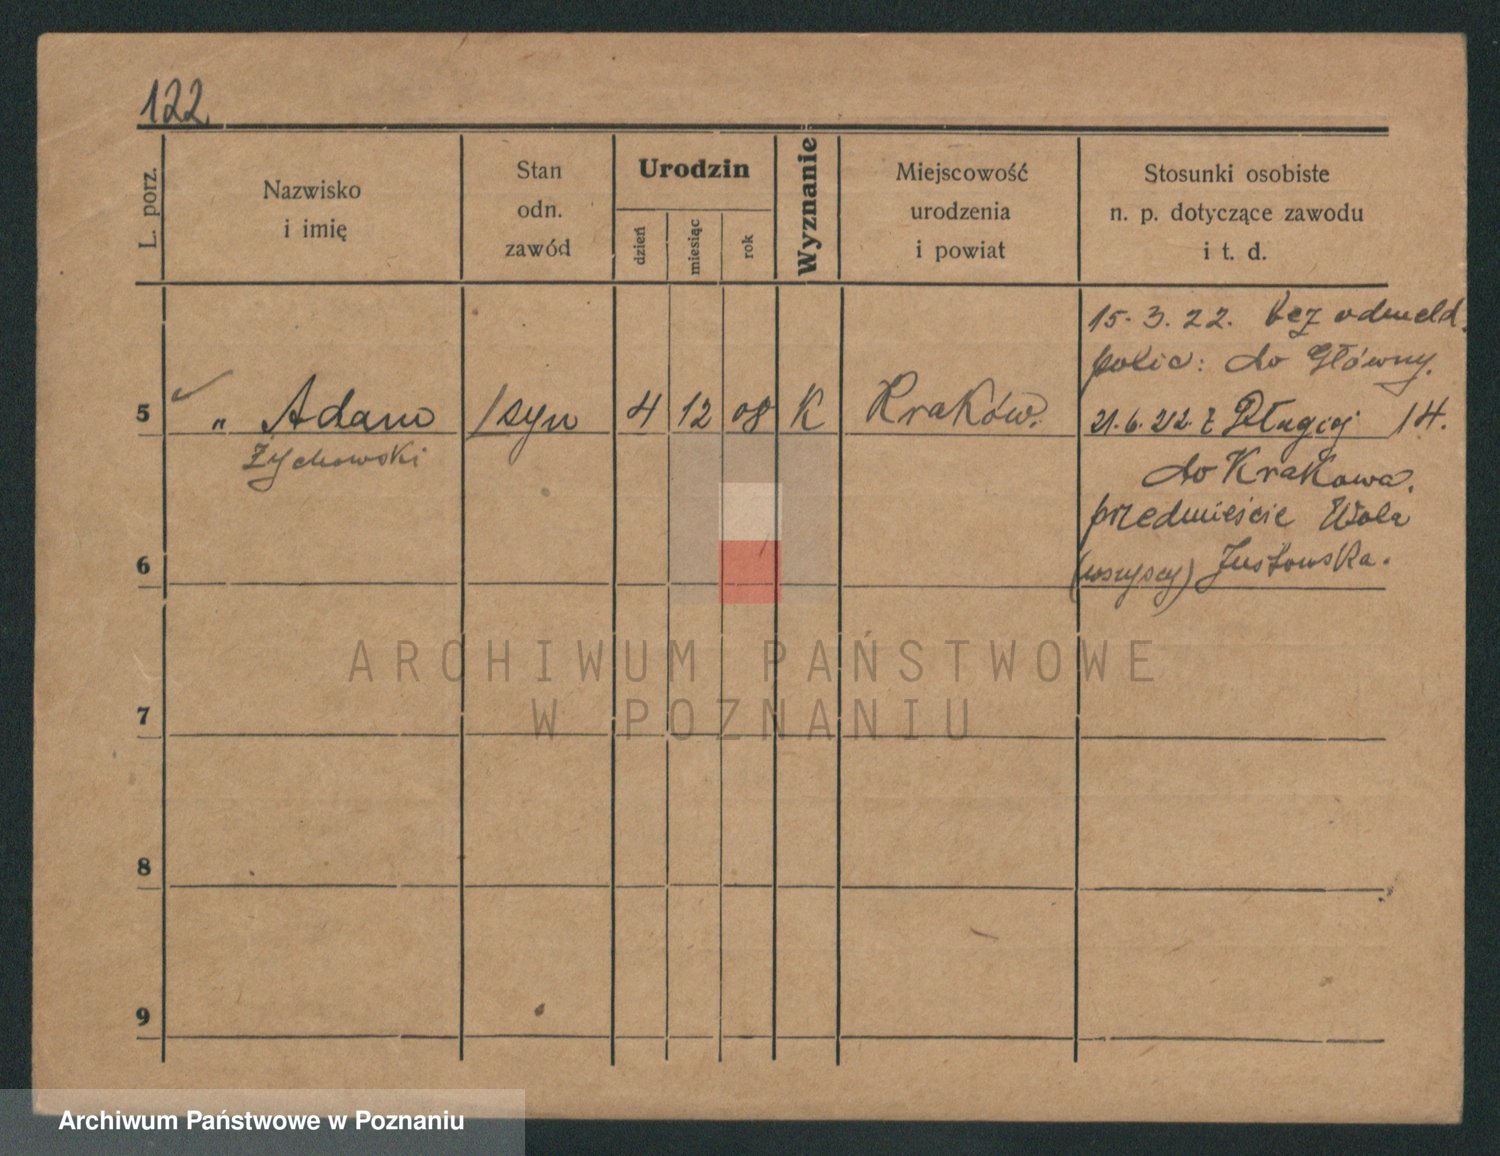 122.
L. porz.
Nazwisko
i imię
Stan
odn.
zawód
Urodzin
dzień
miesiąc
rok
Wyznanie
Miejscowość
urodzenia
i powiat
Stosunki osobiste
n. p. dotyczące zawodu
i t. d.
15. 3. 22. bez odmeld.
polic: do Główny.
5 " Adam /syn 4 12 08 K Kraków. 21. 6. 22. z Długiej 14.
Zychowski
do Krakowa.
przedmieście Wola
6 (wszyscy) Justowska.
7
8
9
ARCHIWUM PAŃSTWOWE
W POZNANIU
Archiwum Państwowe w Poznaniu